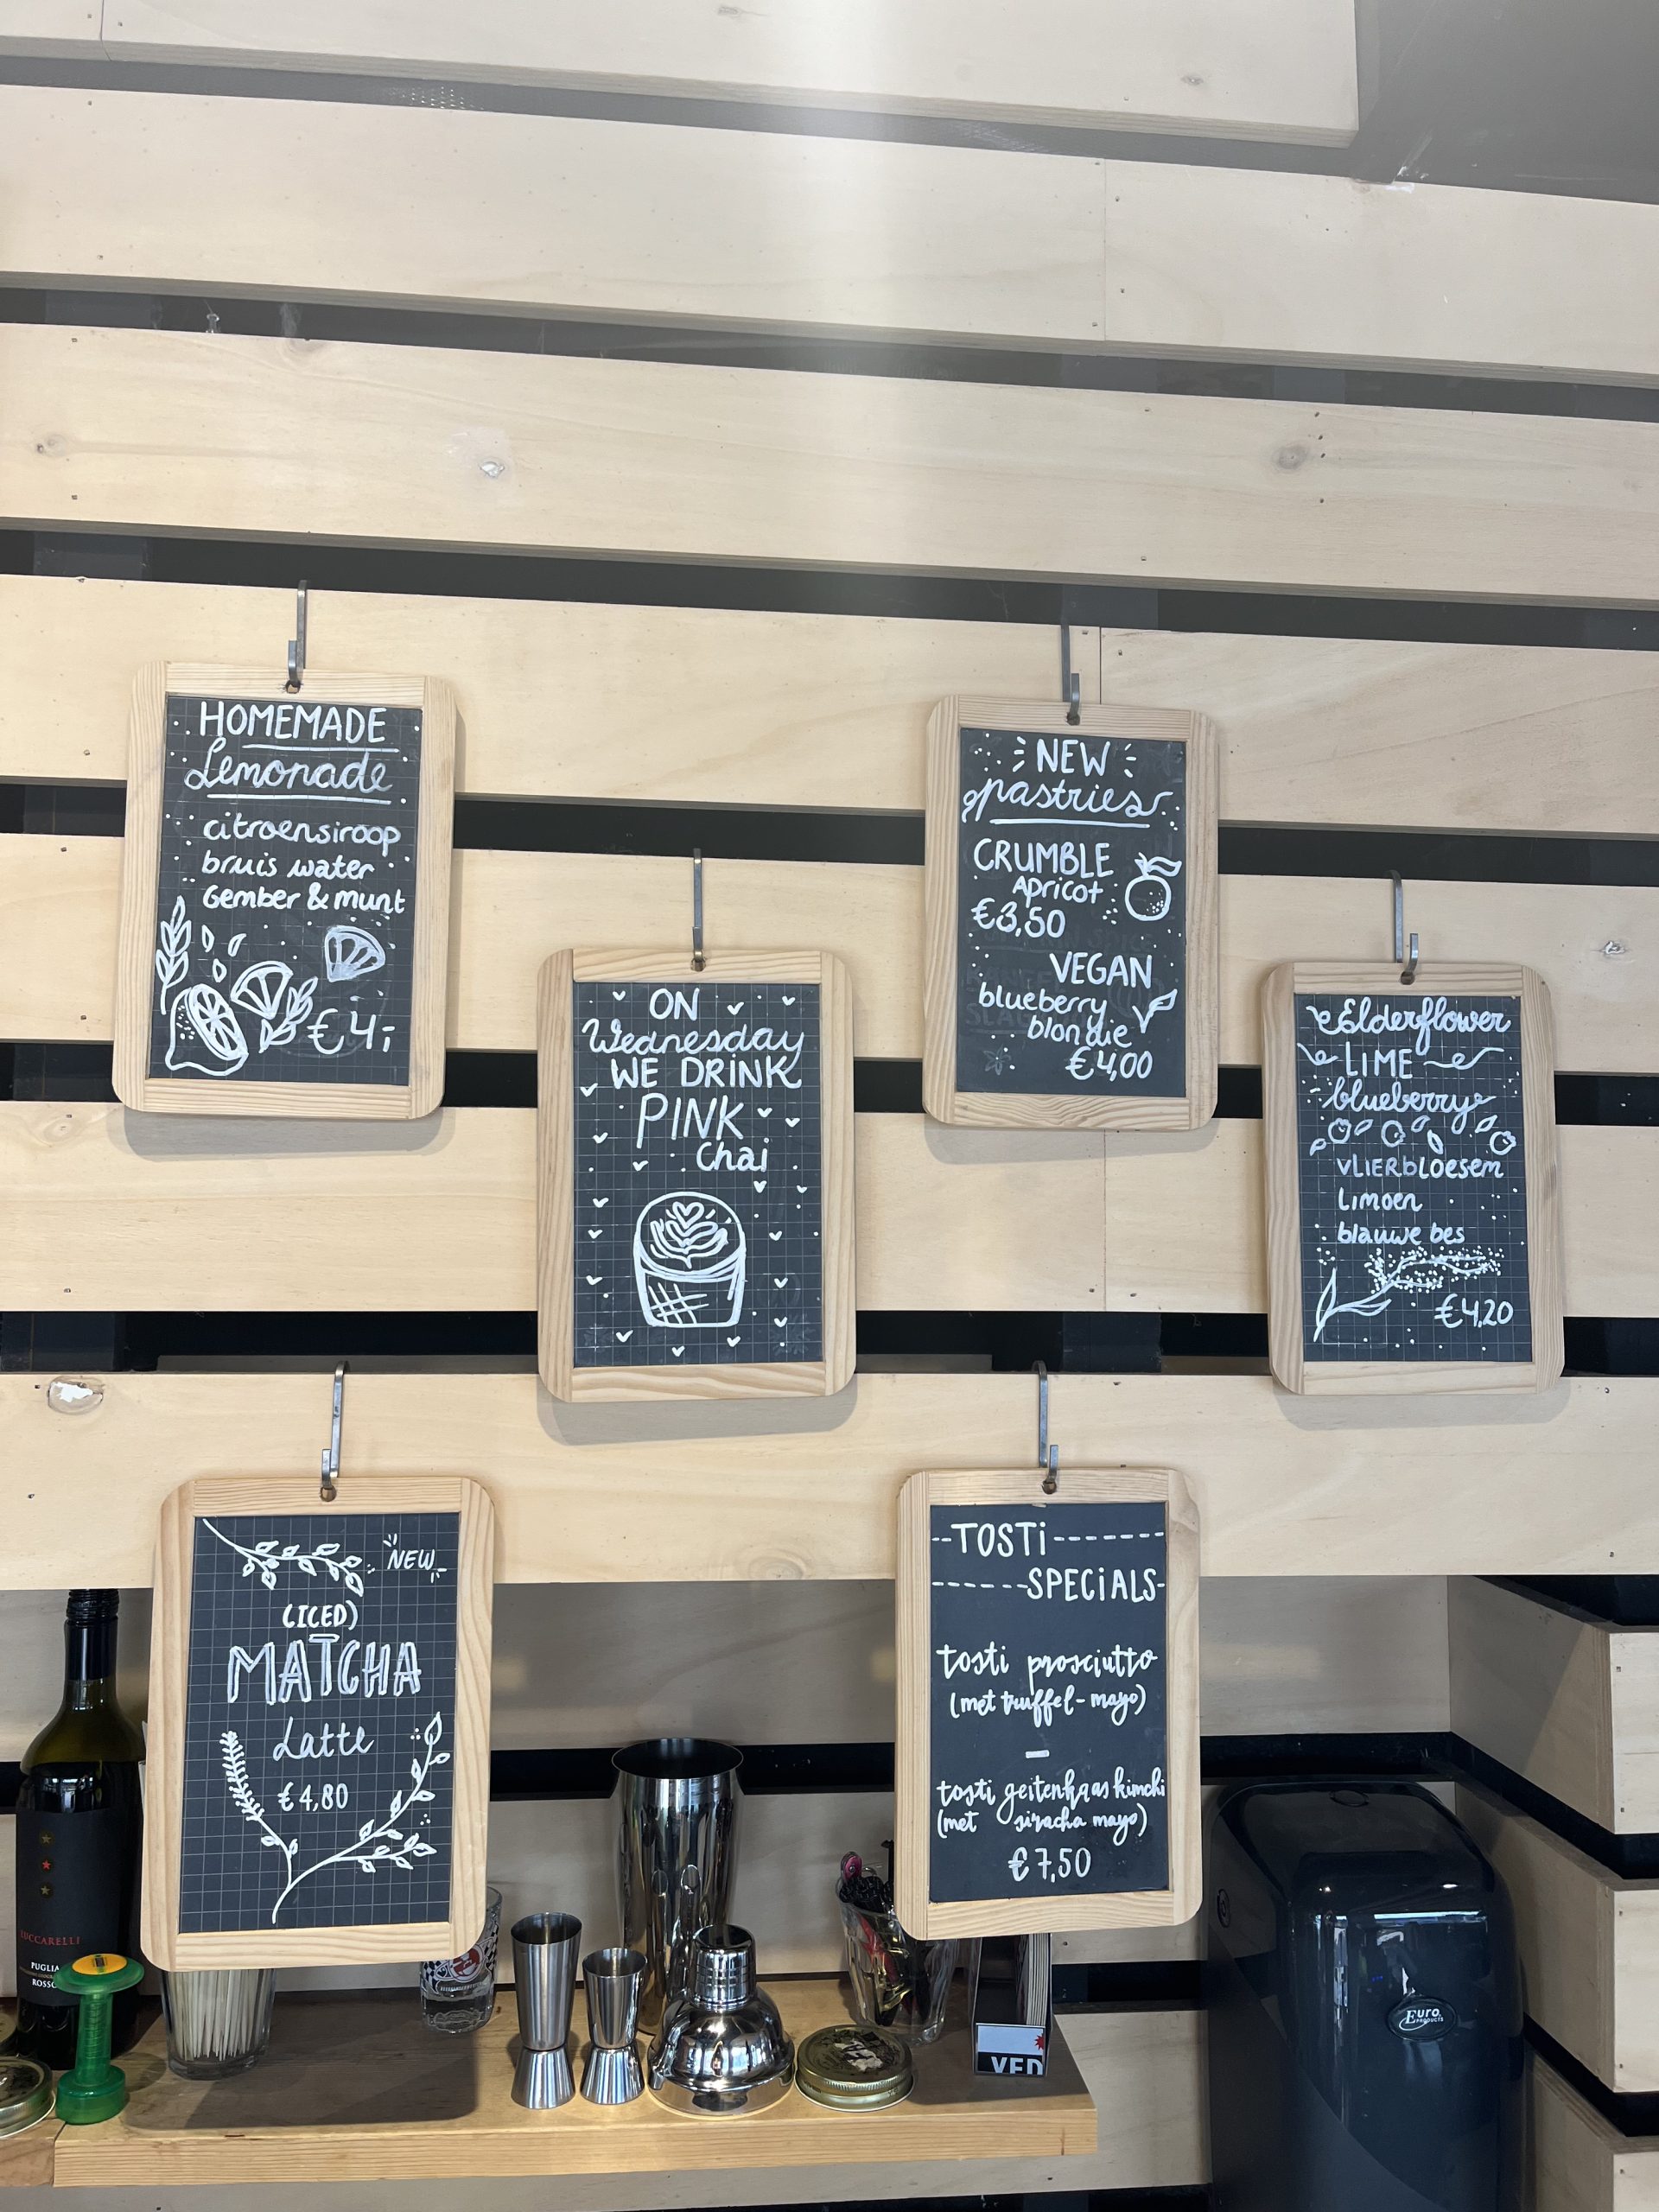 HOMEMADE
Lemonade
citroensiroop
bruis water
Gember & munt
€4,-
NEW
pastries
CRUMBLE
Apricot
€3,50
VEGAN
blueberry
blondie
€4,00
ON
Wednesday
WE DRINK
PINK
chai
Elderflower
LIME
blueberry
vLIERbLoesem
Limoen
blauwe bes
€4,20
NEW
(ICED)
MATCHA
Latte
€4,80
--TOSTi-------
------SPECiALS-
tosti prosciutto
(met truffel-mayo)
—
tosti geitenkaas kimchi
(met siracha mayo)
€7,50
LUCCARELLI
PUGLIA
ROSSO
Euro
PRODUCTS